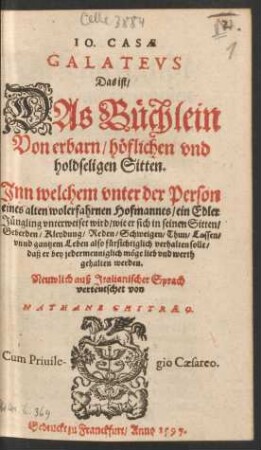 Celle 3884
1
IO. CASÆ
GALATEVS
Das ist/
DAs Büchlein
Von erbarn/ höflichen vnd
holdseligen Sitten.
Jnn welchem vnter der Person
eines alten wolerfahrnen Hofmannes/ ein Edler
Jüngling vnterweiset wird/ wie er sich in seinen Sitten/
Geberden/ Kleydung/ Reden/ Schweigen/ Thun/ Lassen/
vnnd gantzem Leben also fürsichtiglich verhalten solle/
daß er bey jedermenniglich möge lieb vnd werth
gehalten werden.
Neuwlich auß Jtalianischer Sprach
verteutschet von
NATHANE CHITRÆO.
Cum Priuile- gio Cæsareo.
Getruckt zu Franckfurt/ Anno 1597.